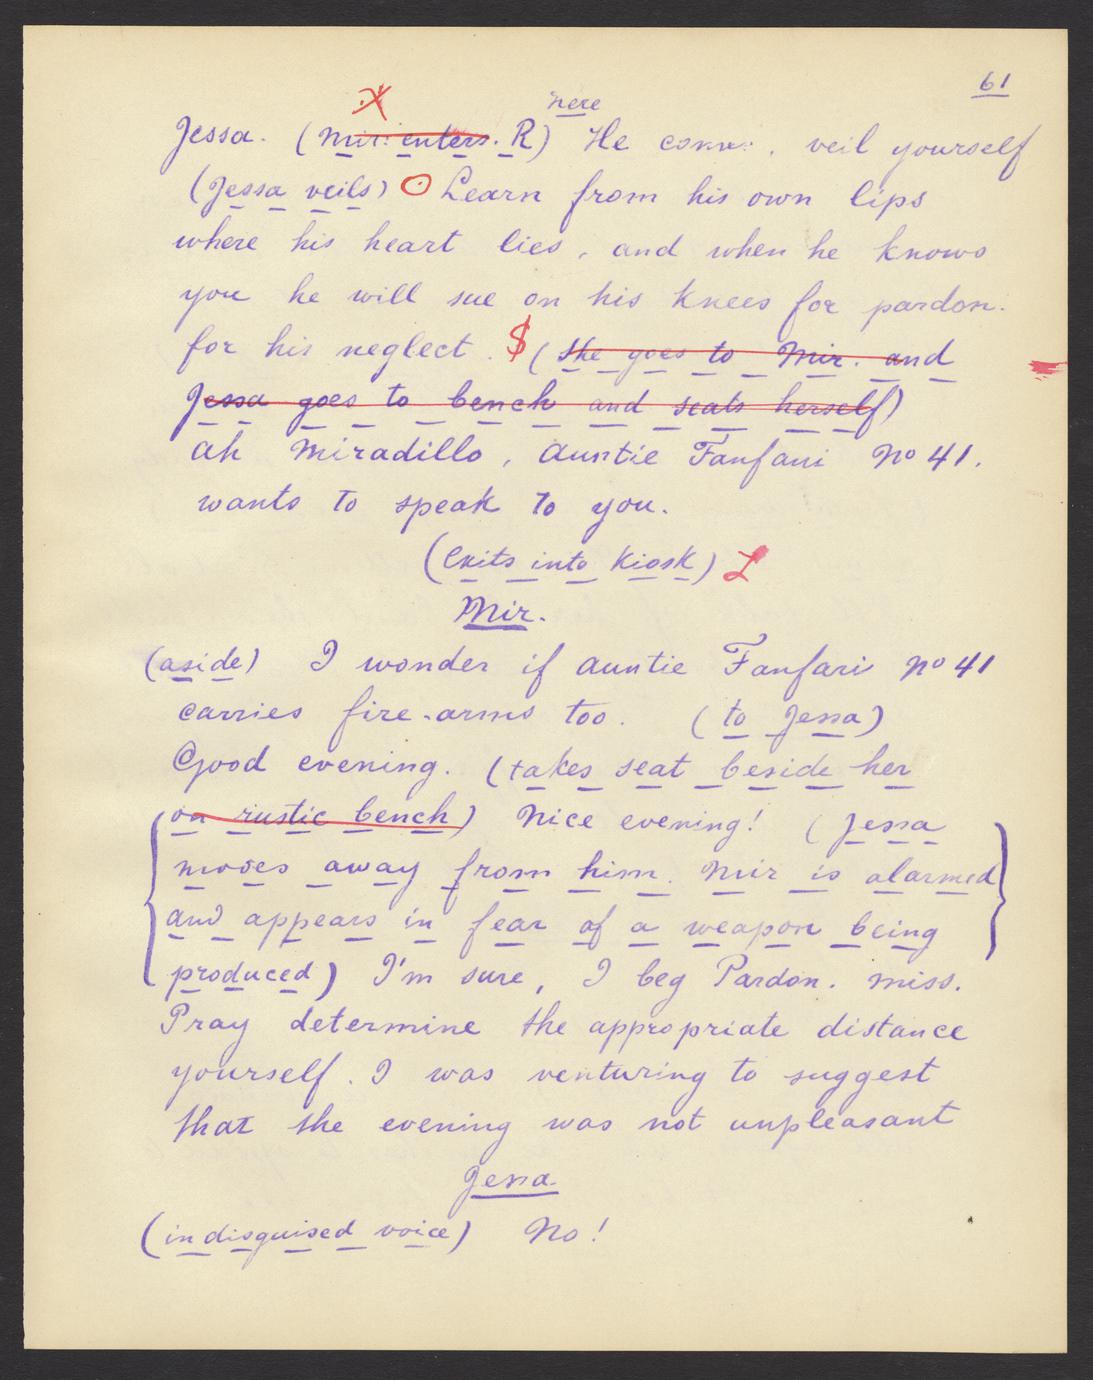 61
here
Jessa. (Mir: enters. R) He comes, veil yourself
(Jessa veils) Learn from his own lips
where his heart lies, and when he knows
you he will sue on his knees for pardon.
for his neglect. $ (she goes to Mir. and
Jessa goes to bench and seats herself)
ah Miradillo, auntie Fanfari No 41.
wants to speak to you.
(Exits into Kiosk) L
Mir.
(aside) I wonder if auntie Fanfari No 41
carries fire-arms too. (to Jessa)
Good evening. (takes seat beside her
on rustic bench) Nice evening! (Jessa
moves away from him. Mir is alarmed
and appears in fear of a weapon being
produced) I'm sure, I beg Pardon. miss.
Pray determine the appropriate distance
yourself. I was venturing to suggest
that the evening was not unpleasant
Jessa.
(in disguised voice) No!